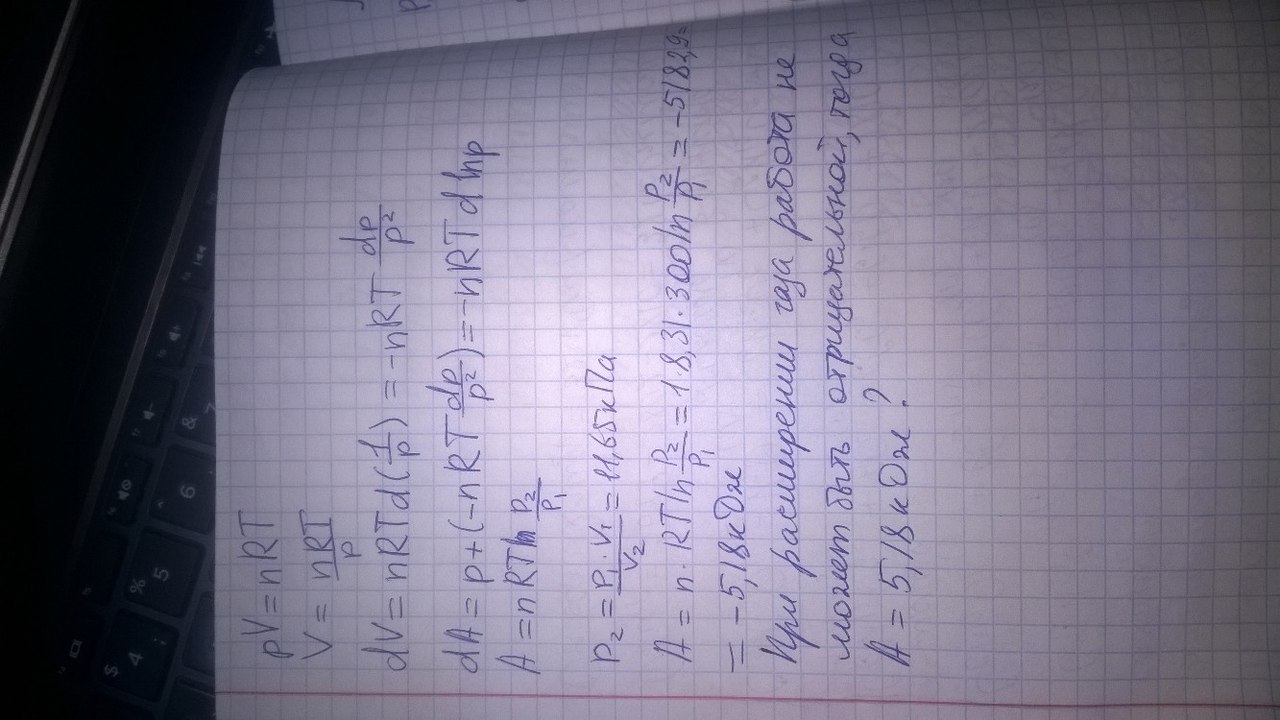 pV = nRT
V = nRT/p
dV = nRT d(1/p) = -nRT dp/p²
dA = p + (-nRT dp/p²) = -nRT d lnp
A = nRT ln P₂/P₁
P₂ = P₁·V₁/V₂ = 11,65кПа
A = n·RT ln P₂/P₁ = 1·8,31·300 ln P₂/P₁ = -5182,9=
= -5,18кДж
При расширении газа работа не
может быть отрицательной, тогда
A = 5,18 кДж?